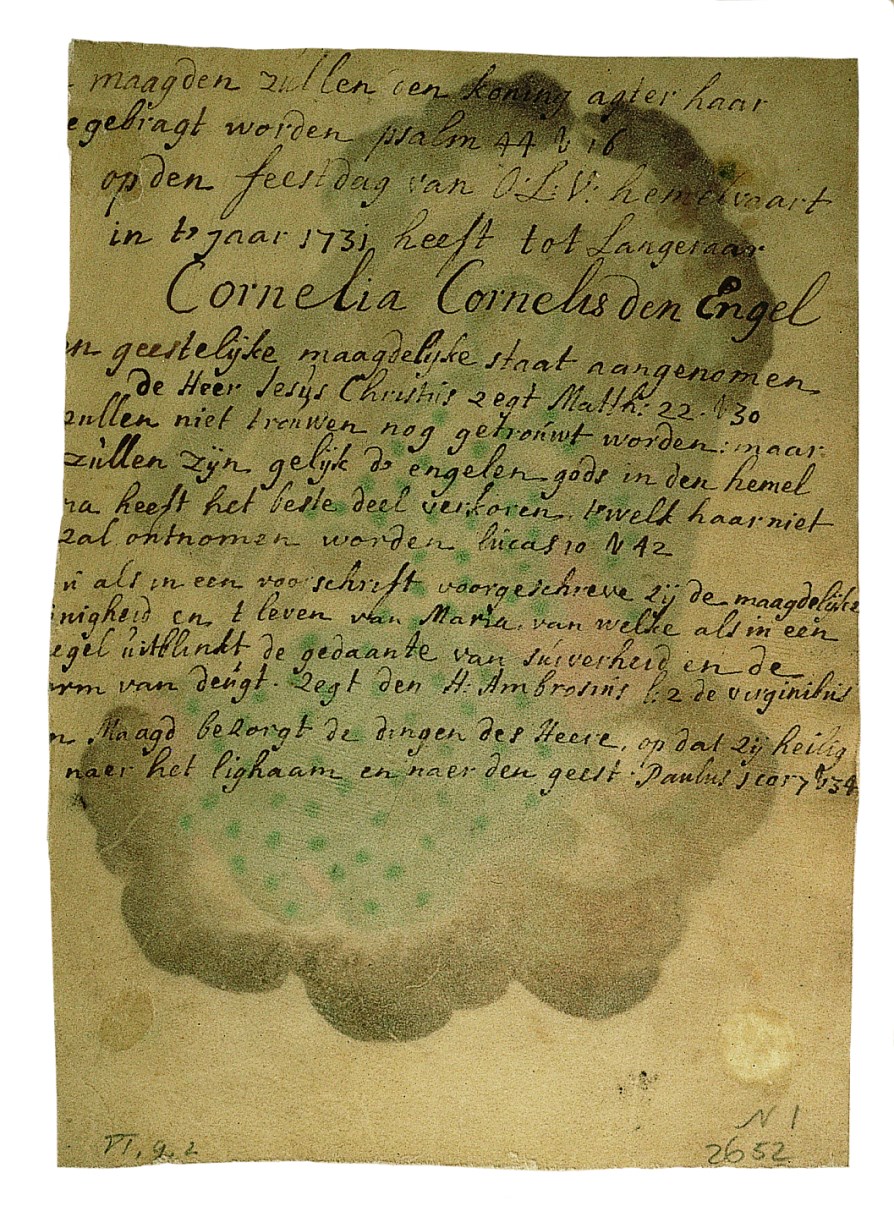 maagden zullen den koning agter haar
egebragt worden psalm 44 v 16
op den feestdag van O:L:V: hemelvaart
in t' jaar 1731 heeft tot Langeraar
Cornelia Cornelis den Engel
en geestelijke maagdelijke staat aangenomen
de Heer Jesus Christus zegt Matth: 22. v 30
zullen niet trouwen nog getrouwt worden: maar
zullen zijn gelijk de engelen gods in den hemel
ria heeft het beste deel verkoren. t'welk haar niet
zal ontnomen worden lucas 10 v 42
u als in een voorschrift voorgeschreve zij de maagdelijke
inigheid en t leven van Maria. van welke als in een
egel uitblinkt de gedaante van suiverheid en de
orm van deugt. zegt den H: Ambrosius l: 2 de virginibus
n Maagd bezorgt de dingen des Heere, op dat zij heilig
naer het lighaam en naer den geest. Paulus 1 cor 7 v 34
VI. g. 2
N 1
2652